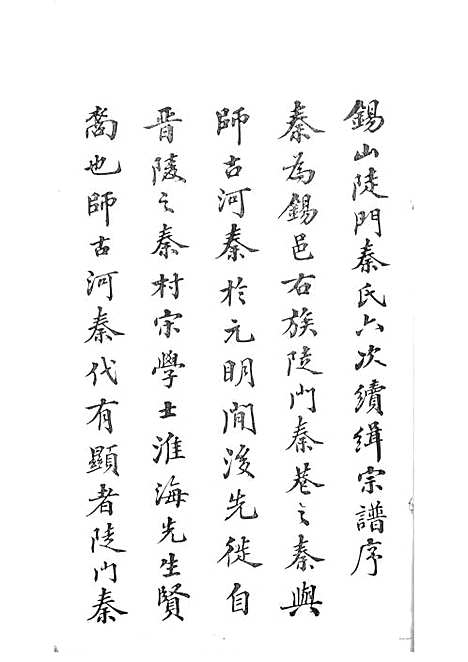 錫山陡門秦氏六次續緝宗譜序
秦為錫邑右族陡門秦巷之秦與
師古河秦於元明間後先徙自
晋陵之秦村宗學士淮海先生賢
裔也師古河秦代有顯者陡门秦